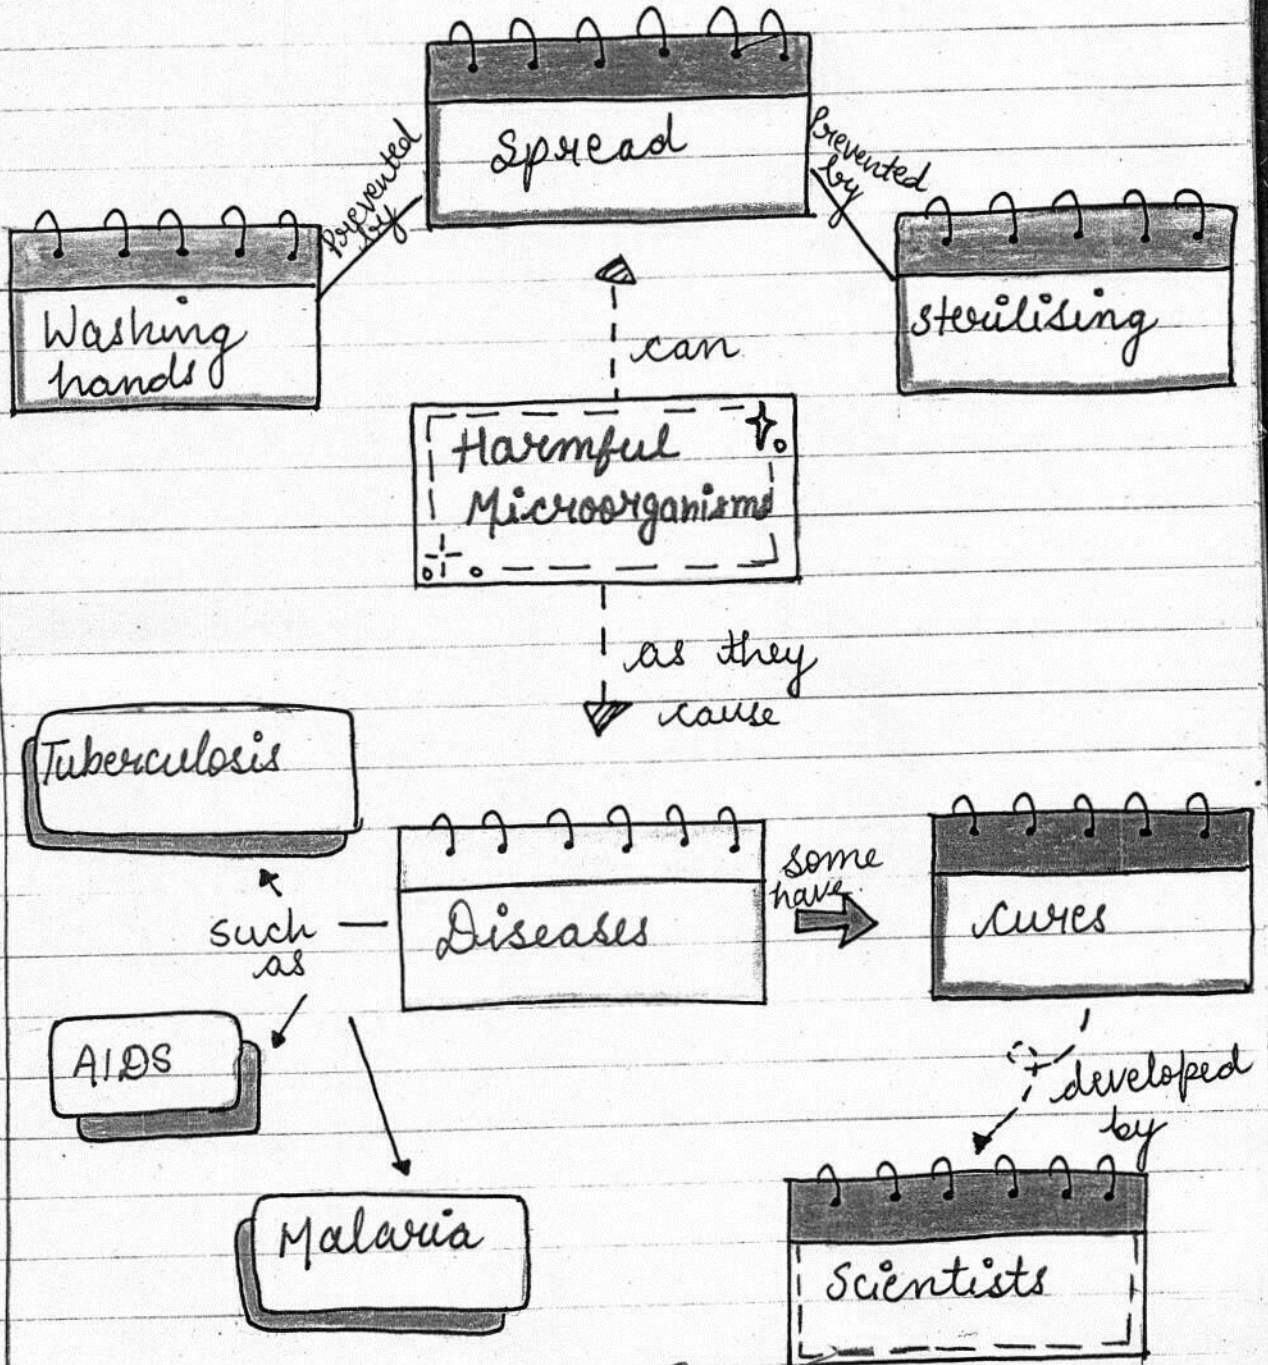 Spread
Prevented
by
Prevented
by
Washing
hands
sterilising
can
Harmful
Microorganisms
as they
cause
Tuberculosis
Diseases
some
have
cures
such
as
AIDS
developed
by
Malaria
Scientists